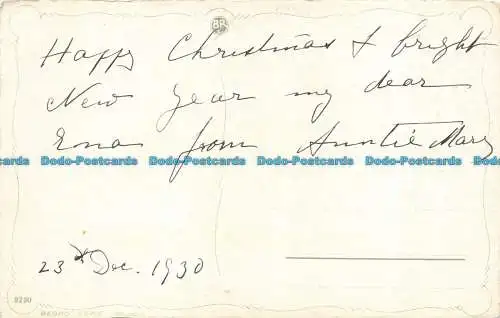 BR
Happy Christmas & bright
New Year my dear
Ena from Auntie Mary
Dodo-Postcards Dodo-Postcards Dodo-Postcards Dodo-Postcards
23 Dec. 1930